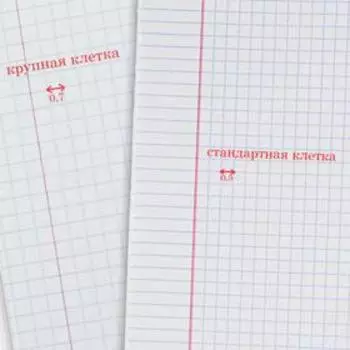 крупная клетка
0,7
стандартная клетка
0,5